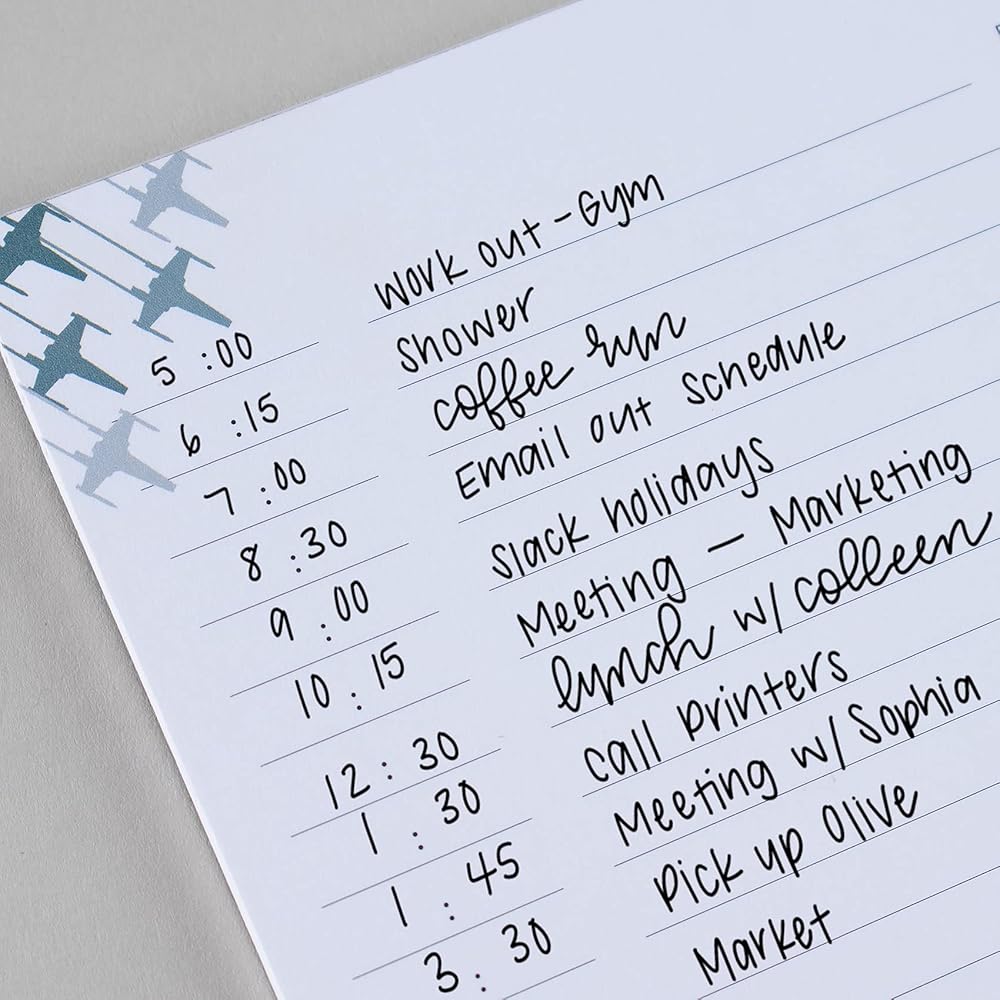 5:00 Work out - Gym
6:15 Shower
7:00 coffee run
8:30 Email out schedule
9:00 Slack holidays
10:15 Meeting — Marketing
12:30 lynch w/ colleen
1:30 call printers
1:45 Meeting w/ Sophia
3:30 Pick up Olive
Market